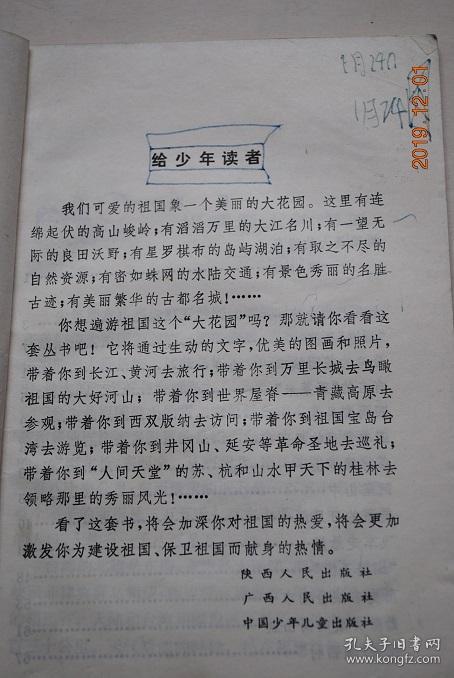 1月24日
1月24
2019.12.01
给少年读者
我们可爱的祖国象一个美丽的大花园。这里有连
绵起伏的高山峻岭；有滔滔万里的大江名川；有一望无
际的良田沃野；有星罗棋布的岛屿湖泊；有取之不尽的
自然资源；有密如蛛网的水陆交通；有景色秀丽的名胜
古迹；有美丽繁华的古都名城！……
你想遍游祖国这个“大花园”吗？那就请你看看这
套丛书吧！它将通过生动的文字，优美的图画和照片，
带着你到长江、黄河去旅行；带着你到万里长城去鸟瞰
祖国的大好河山；带着你到世界屋脊——青藏高原去
参观；带着你到西双版纳去访问；带着你到祖国宝岛台
湾去游览；带着你到井冈山、延安等革命圣地去巡礼；
带着你到“人间天堂”的苏、杭和山水甲天下的桂林去
领略那里的秀丽风光！……
看了这套书，将会加深你对祖国的热爱，将会更加
激发你为建设祖国、保卫祖国而献身的热情。
陕西人民出版社
广西人民出版社
中国少年儿童出版社
孔夫子旧书网
kongfz.com